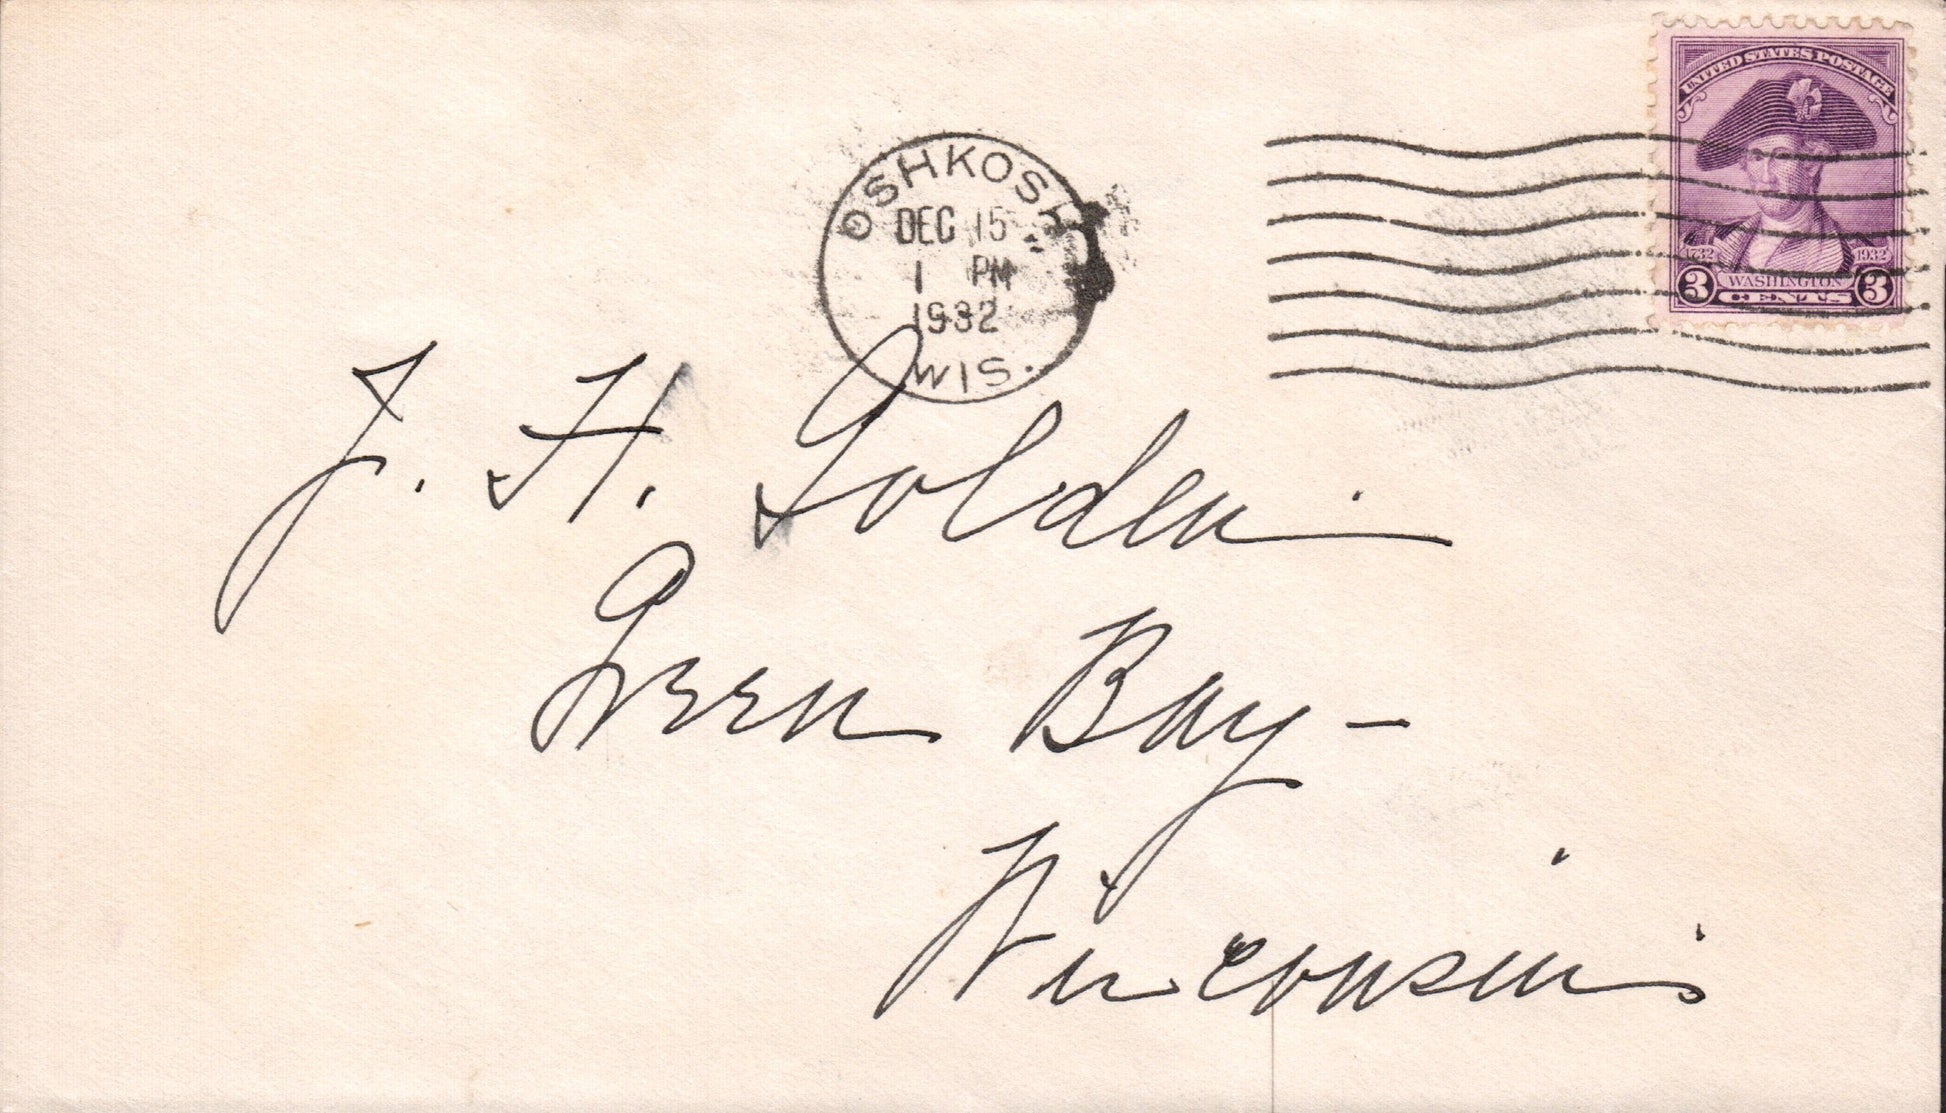 UNITED STATES POSTAGE
1732 1932
3 WASHINGTON 3
CENTS
OSHKOSH
DEC 15
1 PM
1932
WIS.
J. H. Golden
Green Bay -
Wisconsin